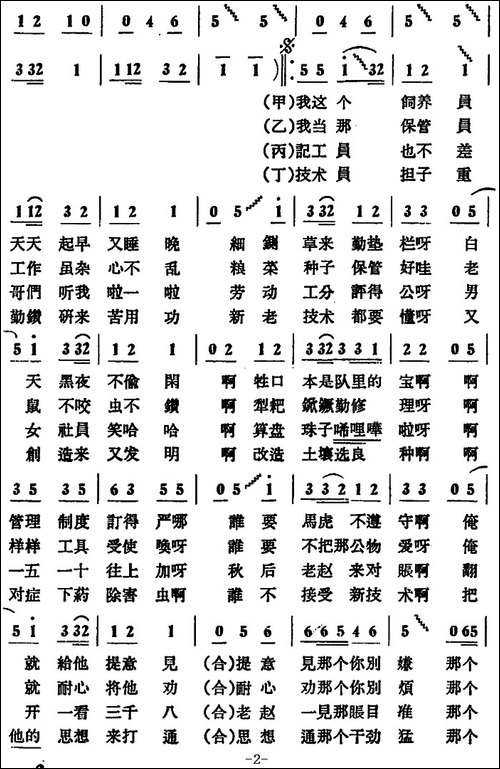 1 2 1 0 | 0 4 6 | 5 5 | 0 4 6 | 5 5
3 32 1 | 1 12 3 2 | 1 1 ) 5 5 i 32 | 1 2 1
(甲)我这个 飼养員
(乙)我当那 保管員
(丙)記工員 也不差
(丁)技术員 担子重
1 12 3 2 | 1 2 1 | 0 5 i | 3 32 1 2 | 3 3 0 5
天天 起早 又睡 晚 細鍘 草来 勤垫 栏呀 白
工作 虽杂 心不 乱 粮菜 种子 保管 好哇 老
哥們 听我 啦一 啦 劳动 工分 評得 公呀 男
勤鑽 研来 苦用 功 新老 技术 都要 懂呀 又
5 i 3 32 | 1 2 1 | 0 2 1 2 | 3 32 3 3 3 | 2 2 0 5
天 黑夜 不偷 閑 啊 牲口 本是队里的 宝啊 啊
鼠 不咬 虫不 鑽 啊 犁耙 鍁鐝勤修 理呀 啊
女 社員 笑哈 哈 啊 算盘 珠子唏哩嘩 啦呀 啊
創 造来 又发 明 啊 改造 土壤选良 种啊 啊
3 5 3 5 | 6 3 5 5 | 0 5 i | 3 3 2 1 2 | 3 5 5
管理 制度 訂得 严哪 誰要 馬虎 不遵 守啊 俺
样样 工具 受使 喚呀 誰要 不把那公物 爱呀 俺
一五 一十 往上 加呀 秋后 老赵 来对 賬啊 翻
对症 下葯 除害 虫啊 誰不 接受 新技 术啊 把
5 i 3 32 | 1 2 1 | 0 5 6 | 6 6 5 4 6 | 5 0 65
就 給他 提意 見 (合)提意 見那个你別 嫌 那个
就 耐心 将他 劝 (合)耐心 劝那个你別 煩 那个
开 一看 三千 八 (合)老赵 一見那賬目 准 那个
他的 思想 来打 通 (合)思想 通那个干劲 猛 那个
-2-